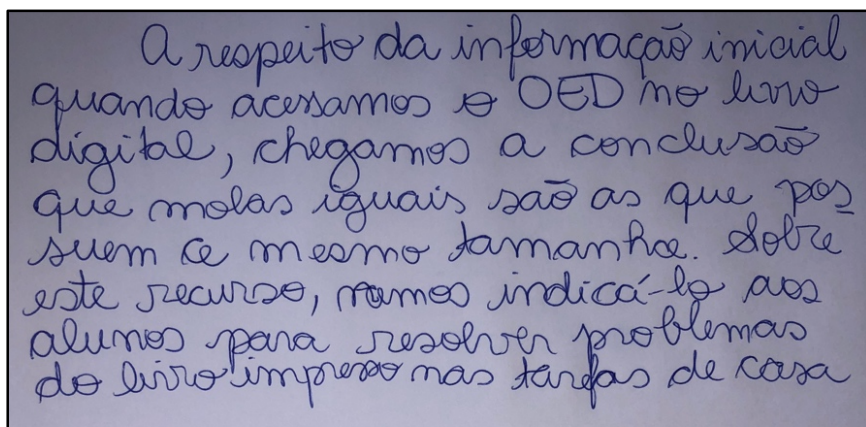 A respeito da informação inicial
quando acessamos o OED no livro
digital, chegamos a conclusão
que molas iguais são as que pos
suem o mesmo tamanho. Sobre
este recurso, vamos indicá-lo aos
alunos para resolver problemas
do livro impresso nas tarefas de casa